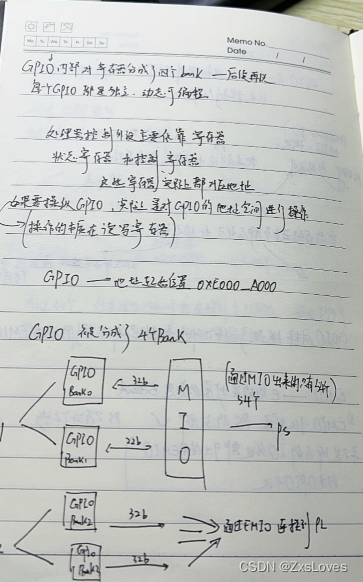 Memo No.
Mo Tu We Th Fr Sa Su
Date / /
GPIO内部对寄存器分成了四个bank —
每个GPIO都是独立、动态可编程
处理器控制外设主要依靠 寄存器
状态寄存器 和控制寄存器
这些寄存器,实际上都对应地址
如果要操纵GPIO,实际上是对GPIO的地址空间进行操作
(操作的本质在读写寄存器)
GPIO — 地址起始位置 0XE000_A000
GPIO 被分成了 4个Bank
GPIO
Bank0
32b
M
I
O
54个
PS
GPIO
Bank1
22b
GPIO
Bank2
32b
通过EMIO 连接到 PL
GPIO
Bank3
32b
CSDN @ZxsLoves